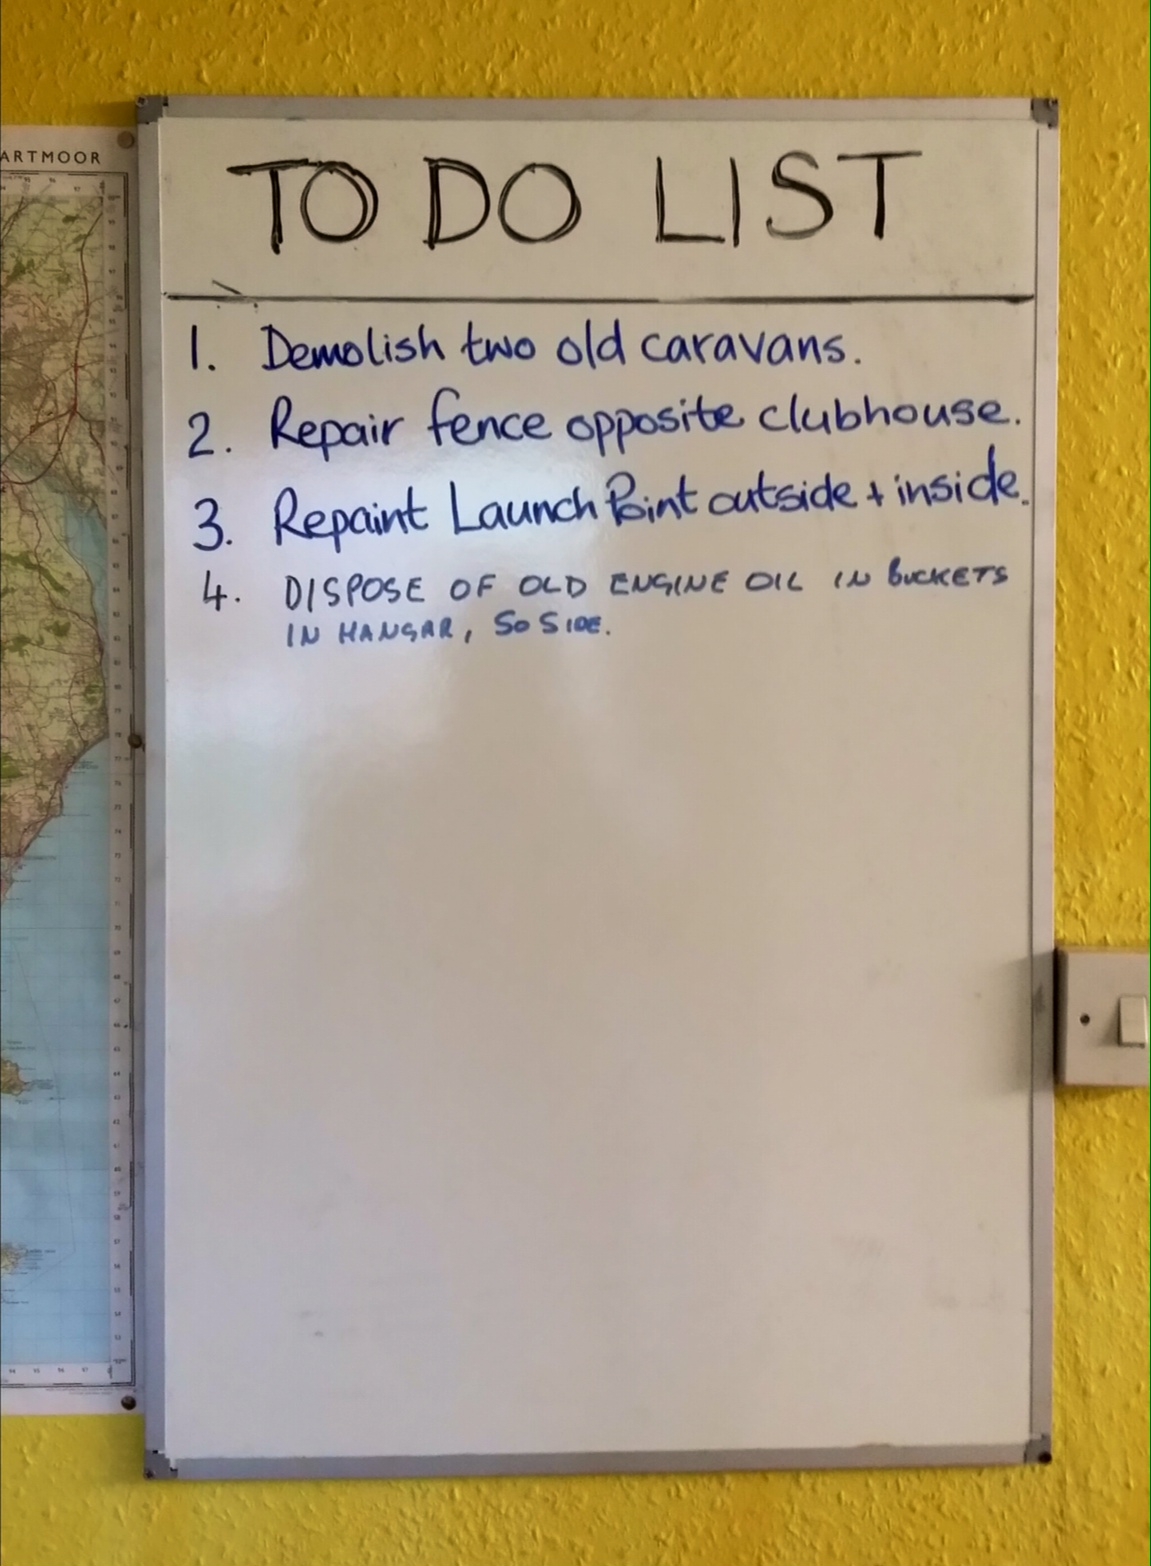 ARTMOOR
TO DO LIST
1. Demolish two old caravans.
2. Repair fence opposite clubhouse.
3. Repaint Launch Point outside + inside.
4. DISPOSE OF OLD ENGINE OIL IN BUCKETS
IN HANGAR, SO SIDE.